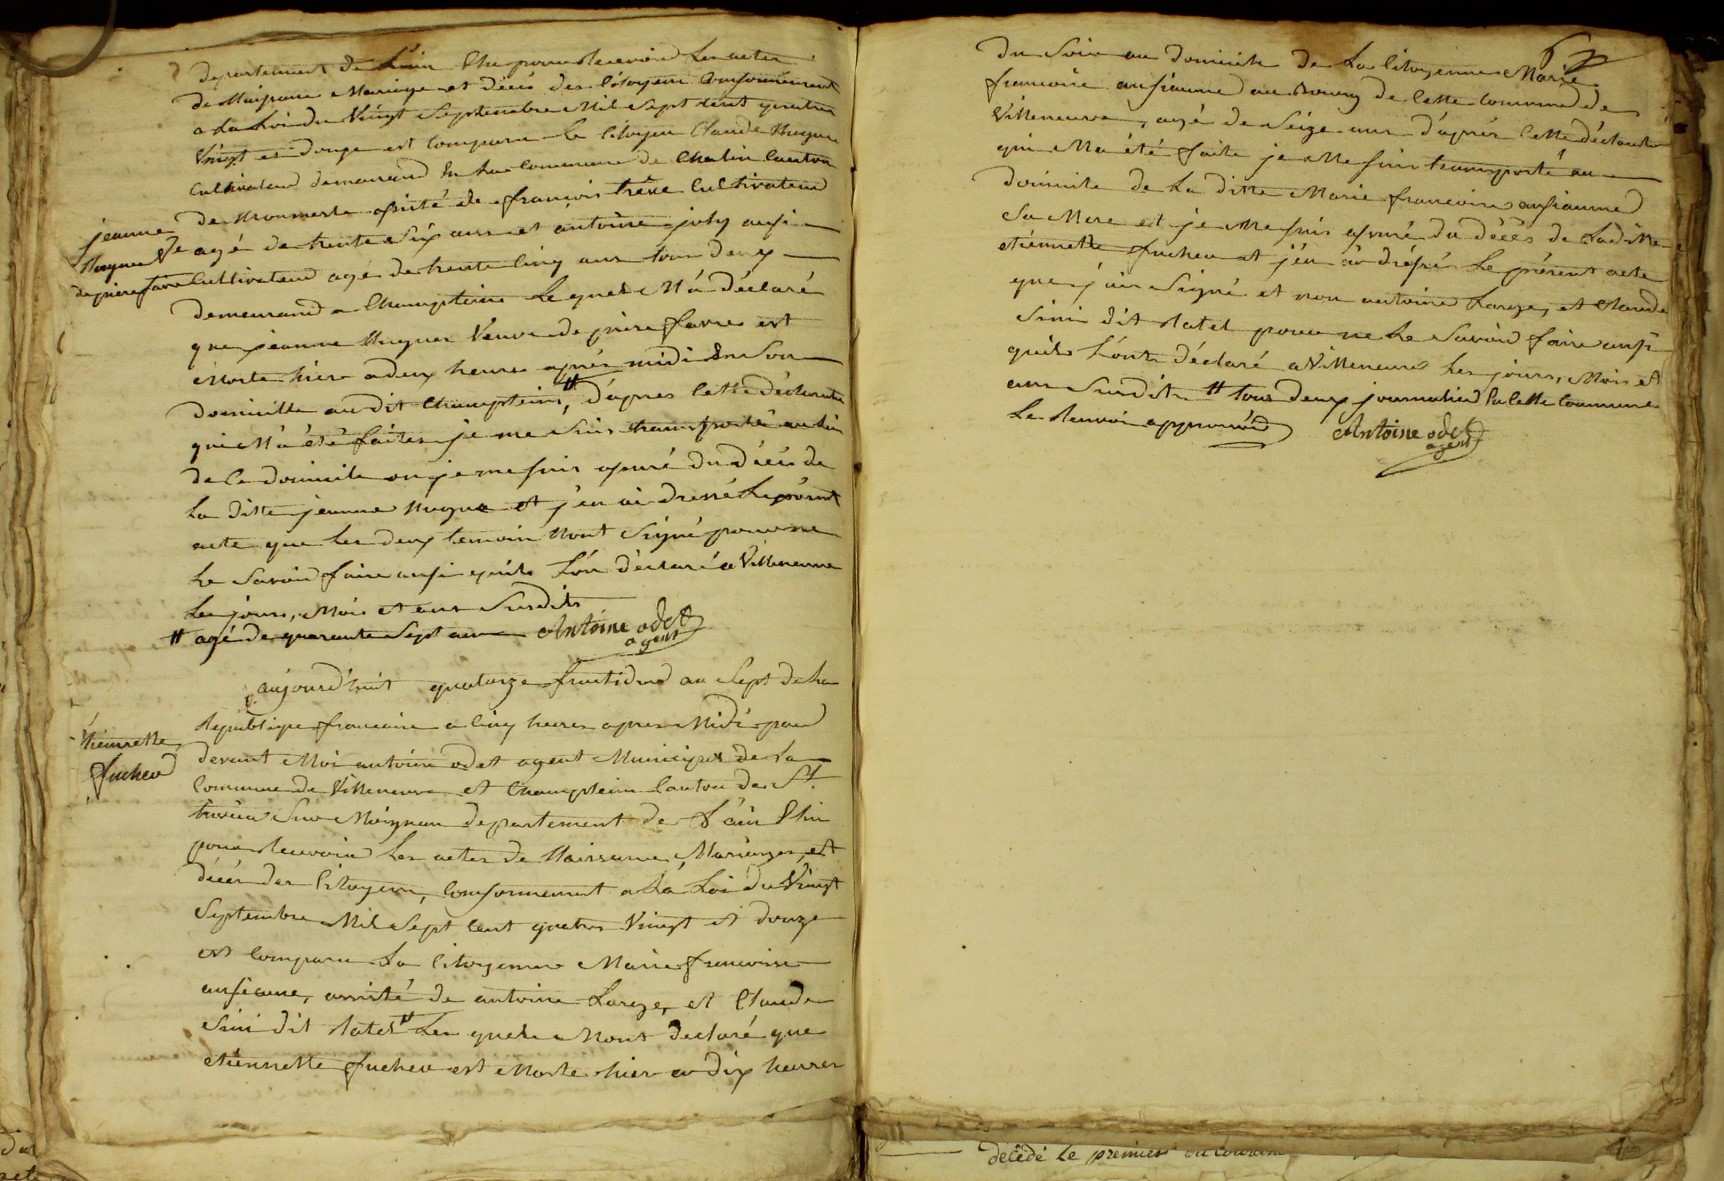 departement de L'ain Elu pour Recevoir Les actes
de Naissance Mariage et décès des Citoyens Conformément
a La Loi du Vingt Septembre Mil Sept cent quatre
Vingt et douze est comparu Le Citoyen Claude
Cultivateur demeurand En La Commune de Canton
de assisté de francois Cultivateur
jeanne
agé de trente Six ans et antoine joly aussi
Cultivateur agé de trente Cinq ans tous deux
demeurand a Champteins Lequel M'a déclaré
que jeanne Veuve de favre est
Morte hier a deux heures après midi En Son
domicille audit Champteins, # d'après Cette déclaration
qui M'a été faites je me Suis transporté au Lieu
de Ce domicile ou je me suis assuré du décès de
La ditte jeanne et j'en ai dressé Le présent
acte que Les deux temoin Nont Signé pour ne
Le Savoir faire ainsi quils L'on déclaré a Villeneuve
Les jours, Mois et ans Susdits
# agé de quarante Sept ans Antoine odet
agent
aujourd'huit quatorze fructidor an Sept de La
Republique francaise a Cinq heures apres Midi par
devant Moi antoine odet agent Municipal de La
étiennette
fucheu
Commune de Villeneuve et Champteins Canton de St
Sur Moignan departement de L'ain Elu
pour Recevoir Les actes de Naissance, Mariages, et
décès des Citoyens, Conformément a La Loi du Vingt
Septembre Mil Sept Cent quatre Vingt et douze
est Comparu La Citoyenne Marie francoise
assisté de antoine Large, et Claude
dit # Les quels Mont declaré que
etiennette fucheu est Morte hier a dix heures
du Soir au domicile de La Citoyenne Marie
francoise au Bourg de Cette Commune de
Villeneuve, agé de Seize ans d'après Cette déclaration
qui Ma été faite je Me suis transporté au
domicile de La ditte Marie francoise
Sa Mere et je Me suis assuré du décès de Laditte
etiennette fucheu et j'en ai dressé Le présent acte
que j'ai Signé et non antoine Large, et Claude
dit pour ne Le Savoir faire ainsi
quils L'ont déclaré a Villeneuve Les jours, Mois et
ans Susdits # tous deux journalier En Cette Commune
Le Renvoi approuvé Antoine odet
agent
décédé le premier du Courant